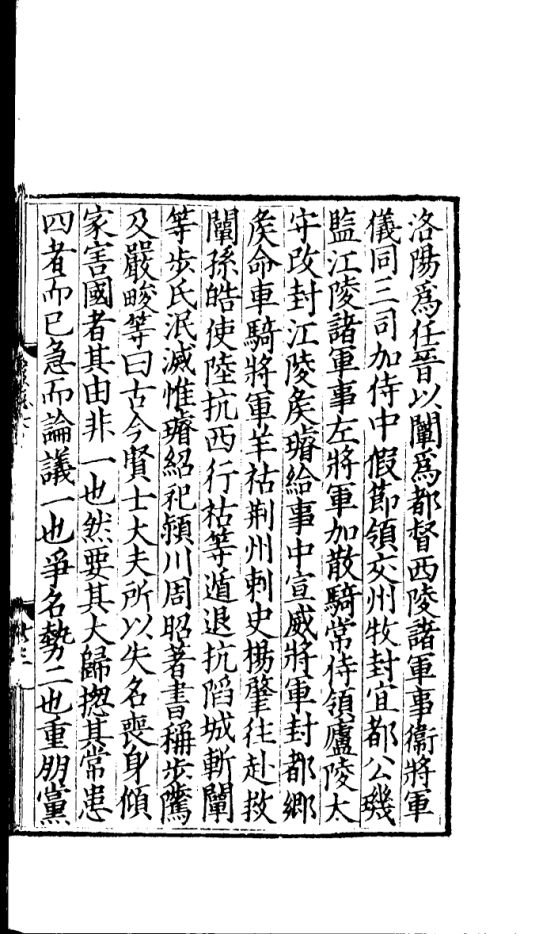 洛陽爲任晉以闡爲都督西陵諸軍事衞將軍
儀同三司加侍中假節領交州牧封宜都公璣
監江陵諸軍事左將軍加散騎常侍領廬陵太
守改封江陵矦璿給事中宣威將軍封都鄉
矦命車騎將軍羊祜荆州刺史楊肇往赴救
闡孫皓使陸抗西行祜等遁退抗䧟城斬闡
等步氏泯滅惟璿紹祀潁川周昭著書稱步隲
及嚴畯等曰古今賢士大夫所以失名喪身傾
家害國者其由非一也然要其大歸揔其常患
四者而已急而論議一也爭名勢二也重朋黨